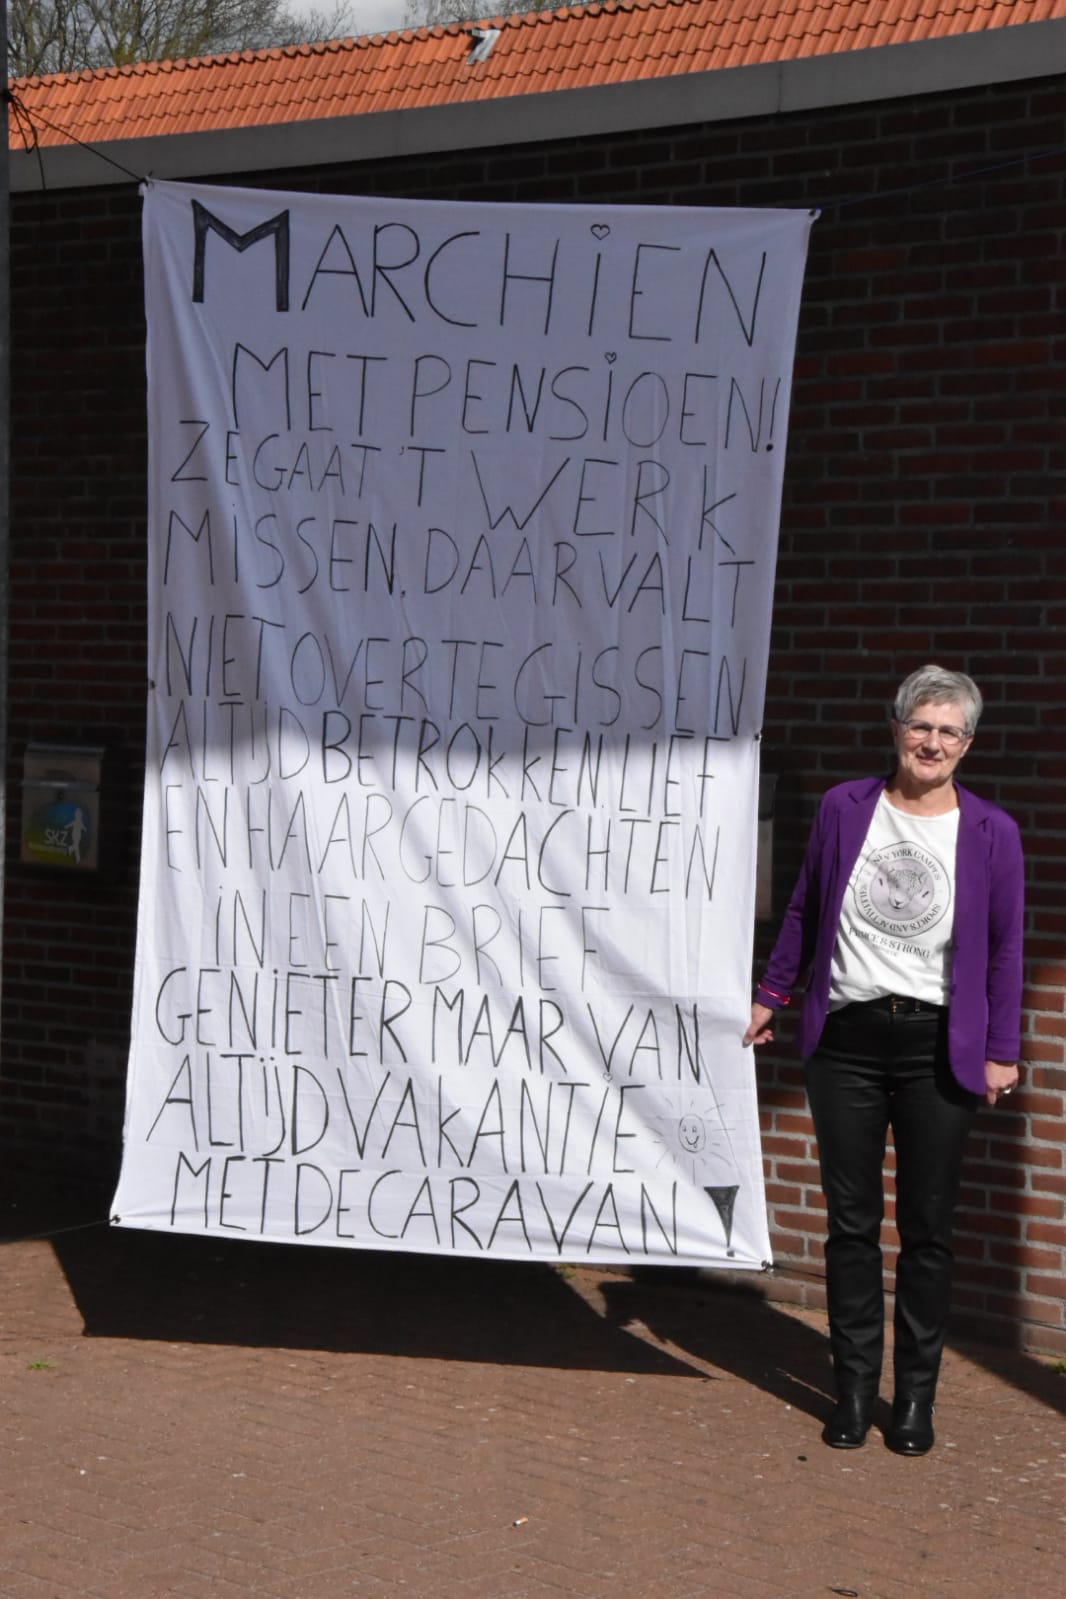 MARCHIEN
MET PENSIOEN!
ZE GAAT 'T WERK
MISSEN. DAAR VALT
NIET OVER TE GISSEN
ALTIJD BETROKKEN, LIEF
EN HAAR GEDACHTEN
IN EEN BRIEF
GENIETER MAAR VAN
ALTIJD VAKANTIE
MET DE CARAVAN!
SKZ
NEW YORK CAMPUS
SPORTS AND ACTIVITIES
FIERCE & STRONG